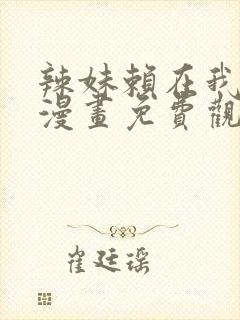 辣妹賴在我
漫畫免費觀
崔廷瑶